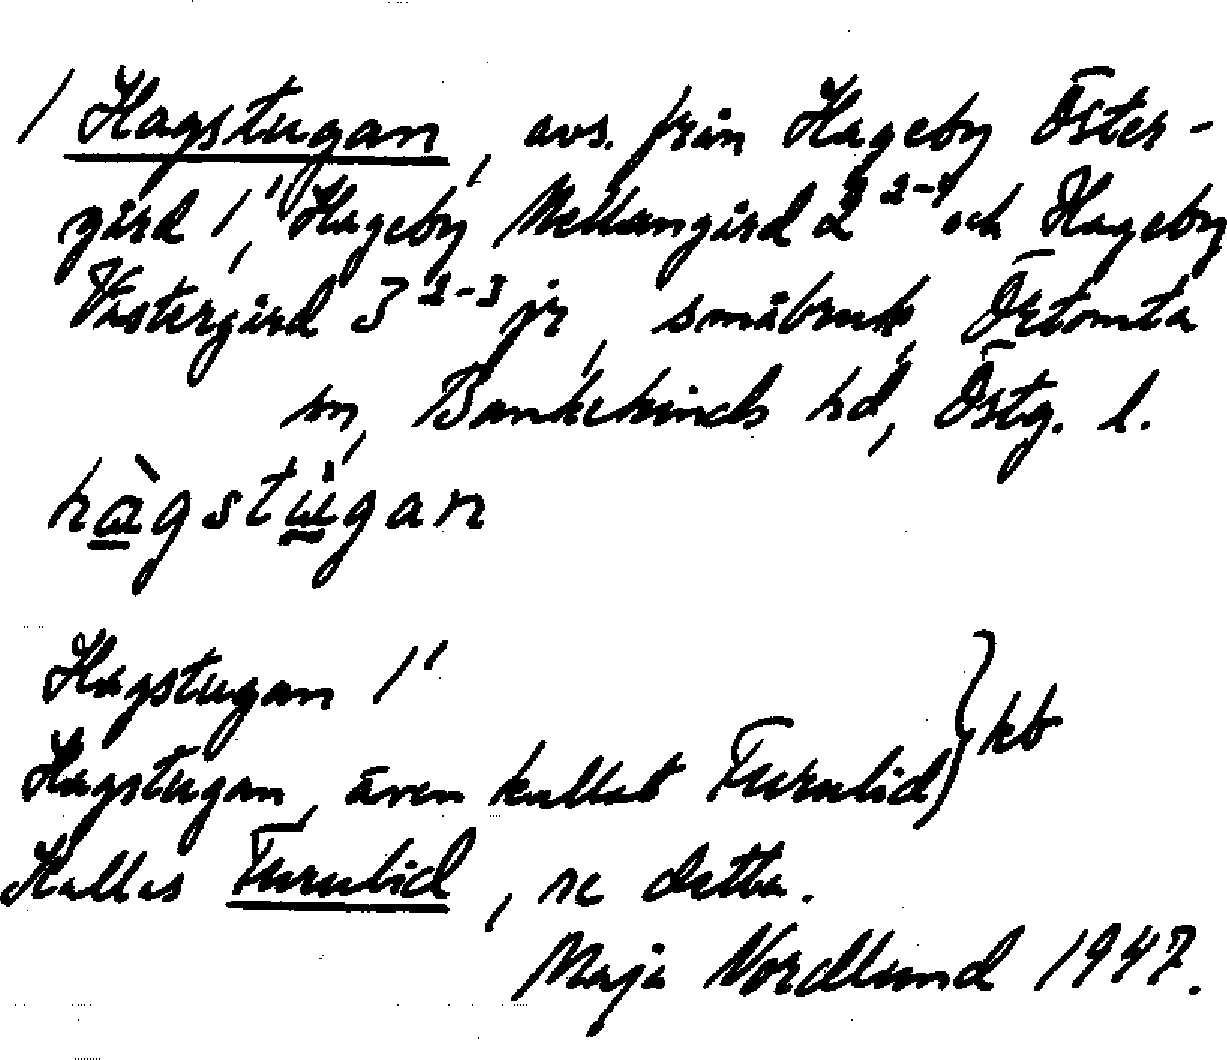 / Hagstugan, avs. från Hageby Öster-
gård 1¹, Hageby Mellangård 2²⁻⁴ och Hageby
Västergård 3²⁻³ jr, småbruk, Örtomta
sn, Bankekinds hd, Östg. l.
hàgstùgan
Hagstugan 1¹
Hagstugan, även kallat Furulid } kb
Kallas Furulid, se detta.
Maja Nordlund 1947.